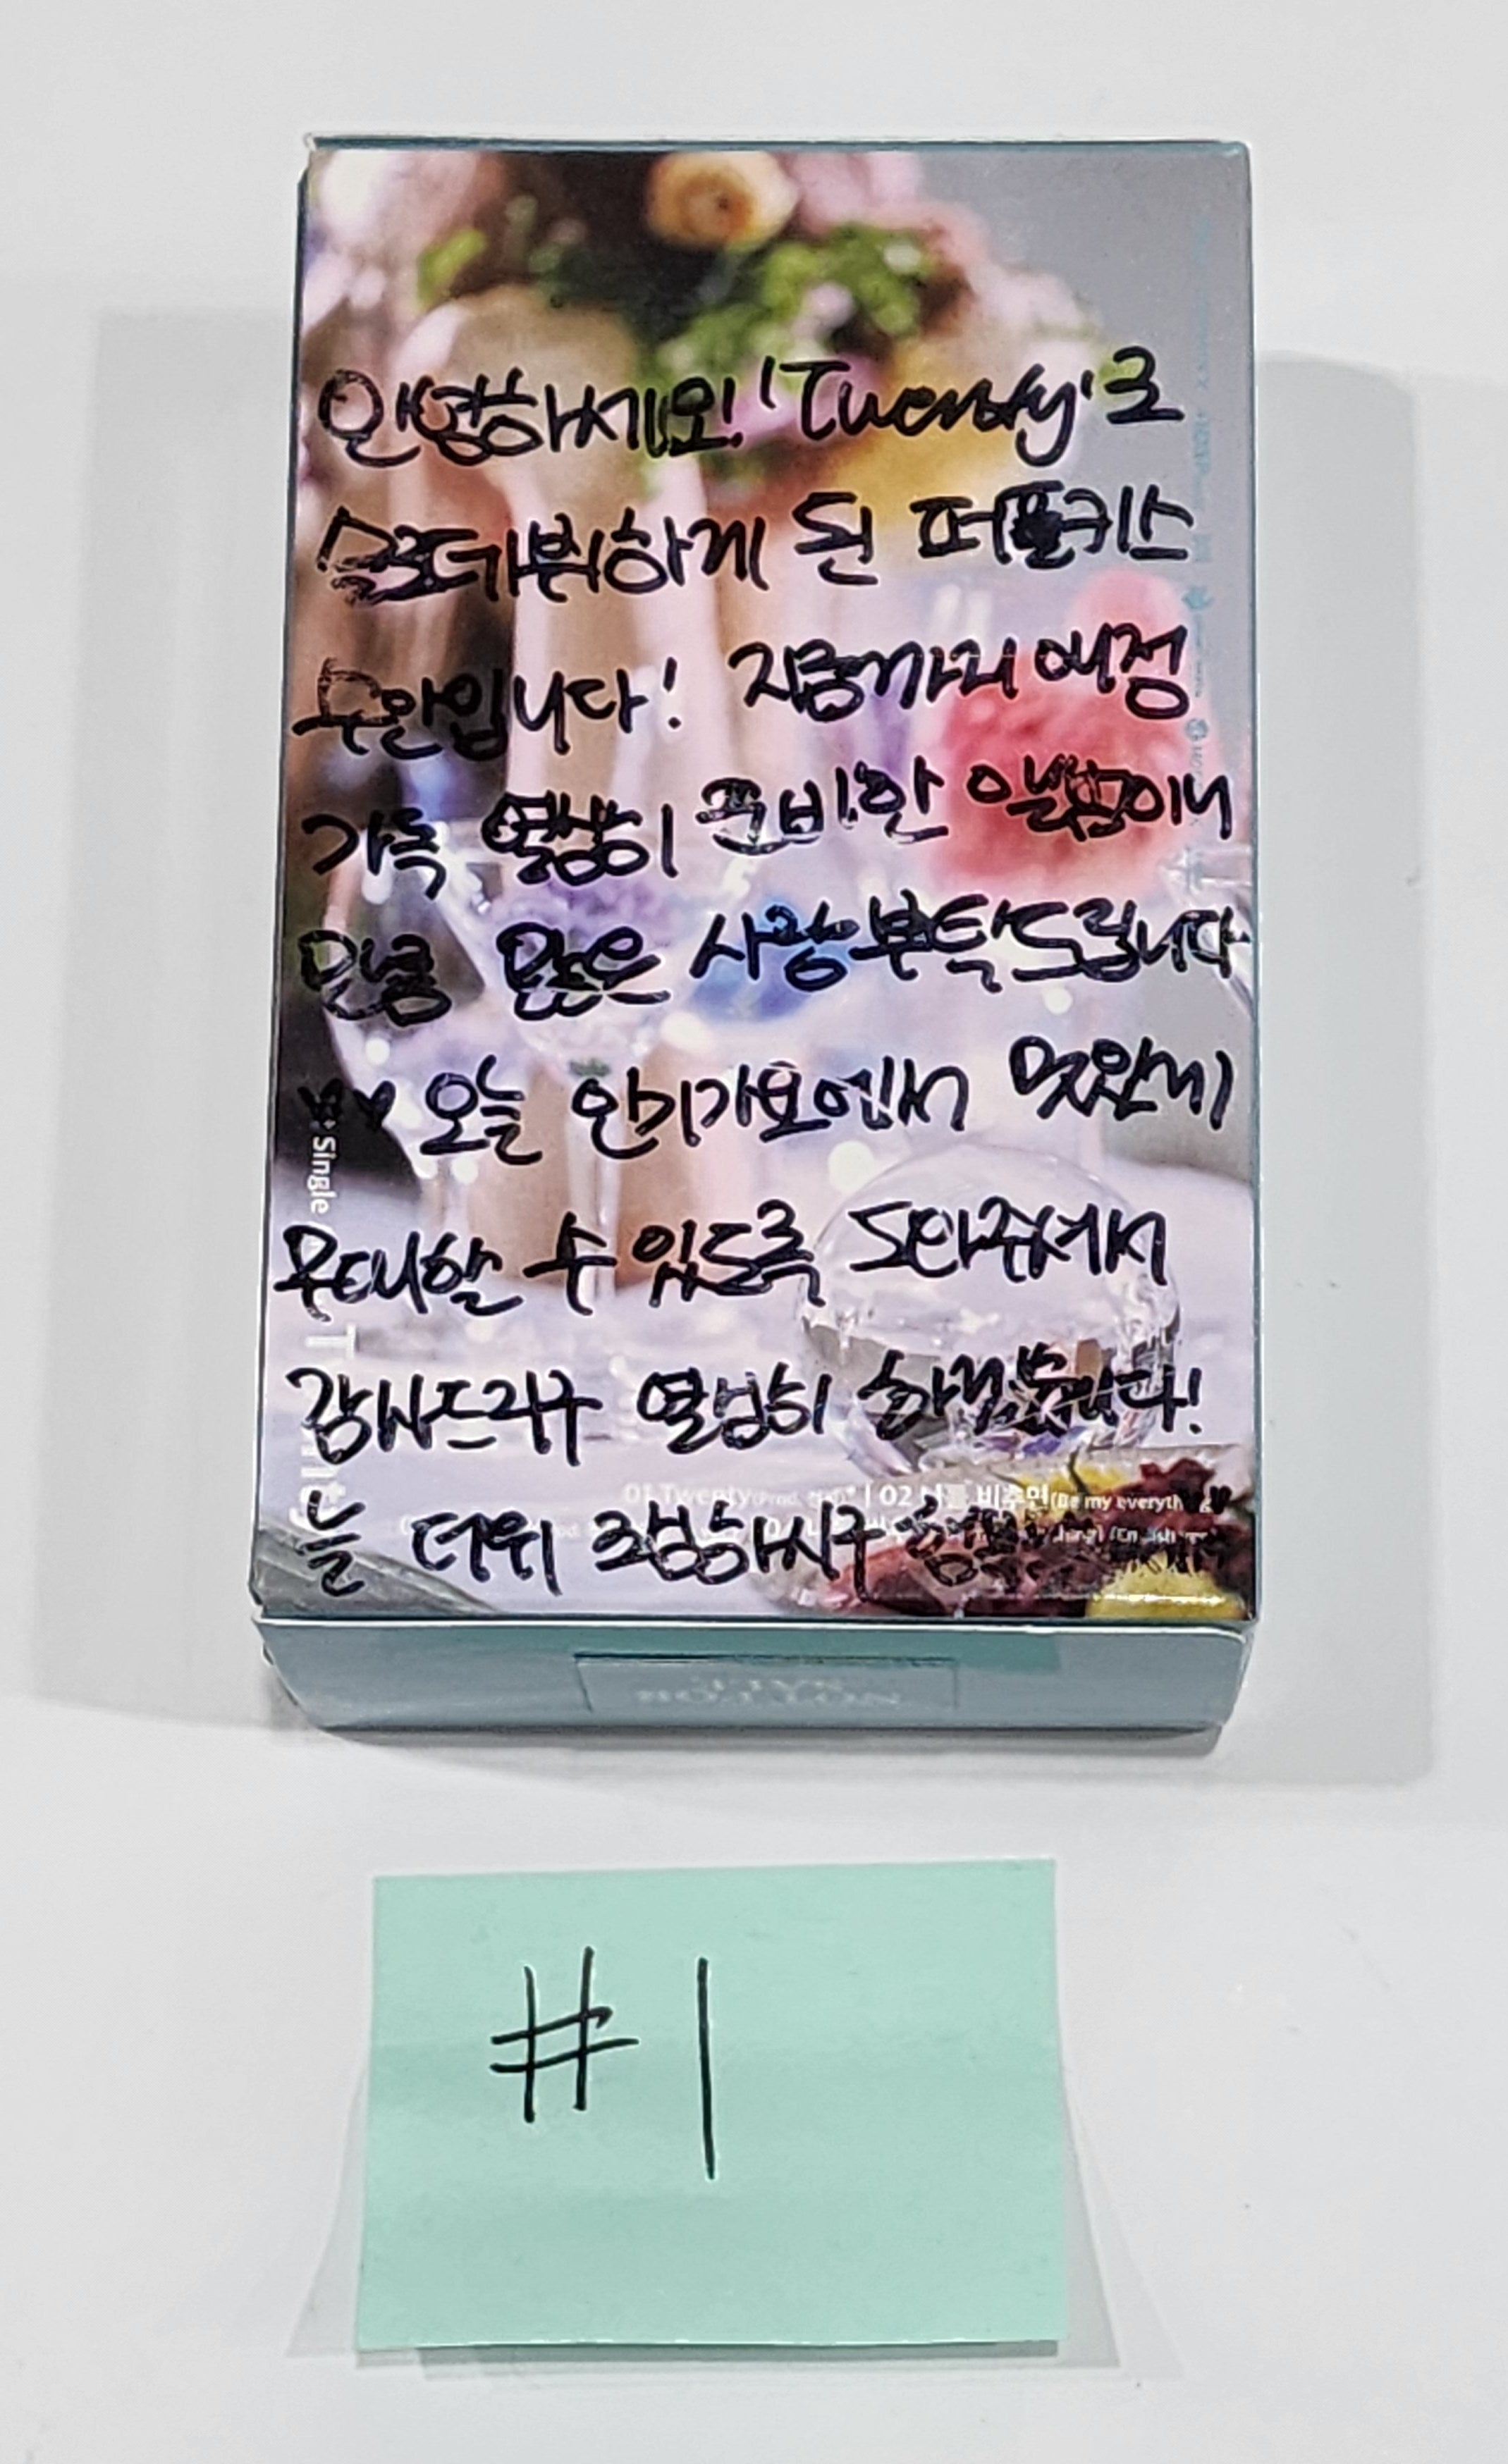 안녕하세요! 'Twenty'로
솔로데뷔하게 된 퍼플키스
수안입니다! 지금까지 애정
가득 열심히 준비한 앨범이니
만큼 많은 사랑 부탁드립니다
오늘 인기가요에서 멋있게
무대할 수 있도록 도와주셔서
감사드리구 열심히 하겠습니다!
늘 더위 조심하시구
Single
01 Twenty(Prod.
02 나를 비추면(Be my everyth
NOT FOR
SALE
#1